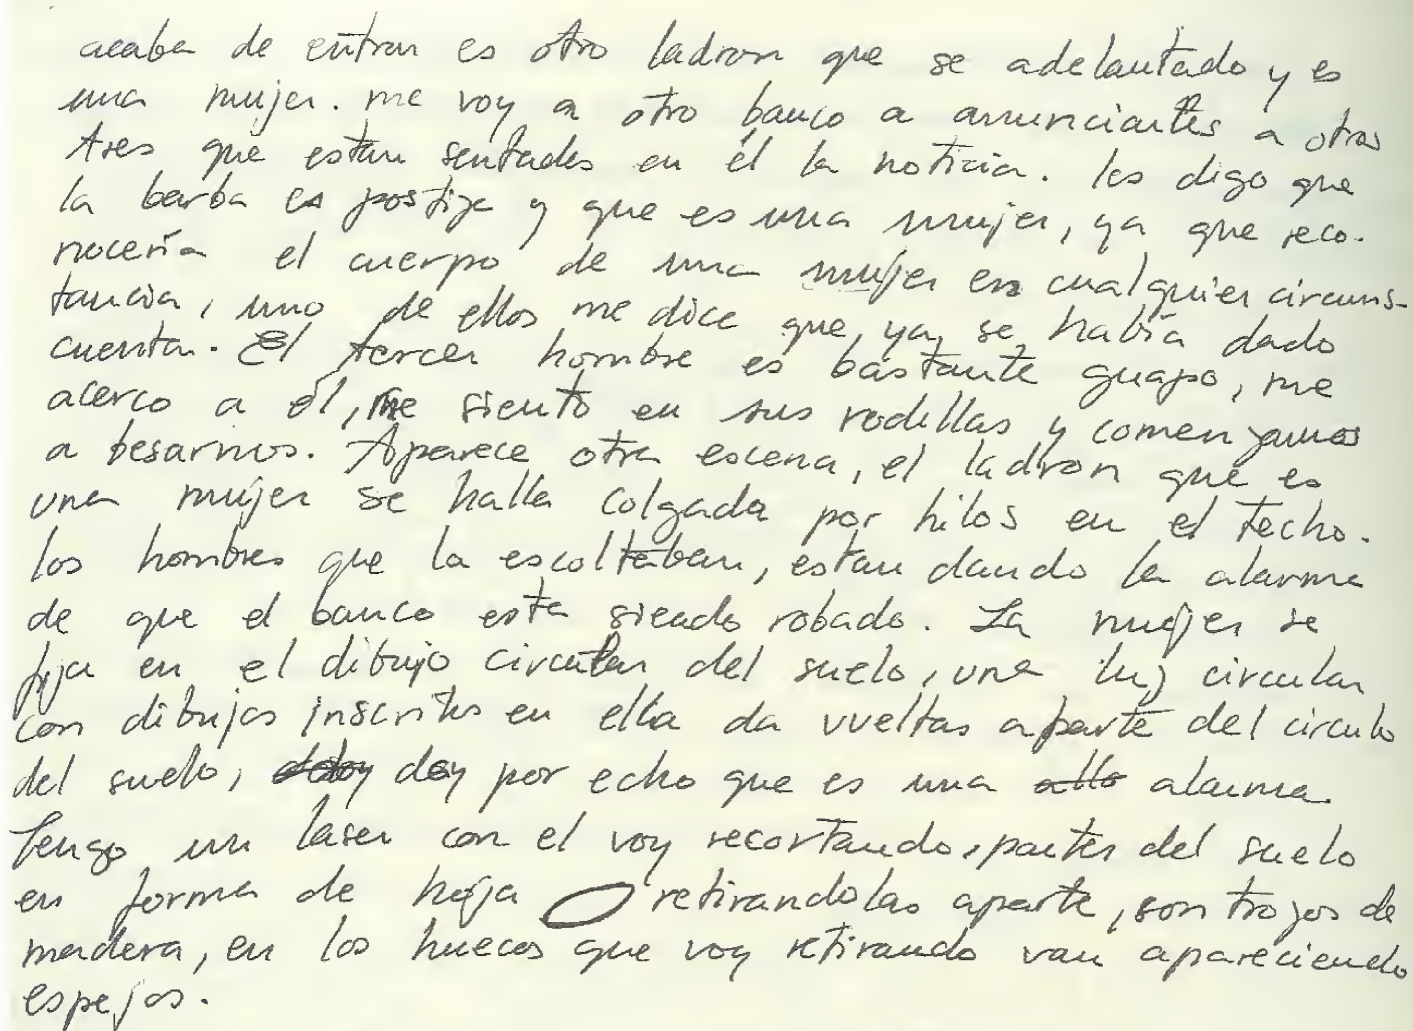 acaba de entrar es otro ladron que se adelantado y es
una mujer. me voy a otro banco a anunciarles a otros
tres que estan sentados en él la noticia. les digo que
la barba es postiza y que es una mujer, ya que reco-
nocería el cuerpo de una mujer en cualquier circuns-
tancia, uno de ellos me dice que ya se había dado
cuenta. El tercer hombre es bastante guapo, me
acerco a él, me siento en sus rodillas y comenzamos
a besarnos. Aparece otra escena, el ladron que es
una mujer se halla colgada por hilos en el techo.
los hombres que la escoltaban, estan dando la alarma
de que el banco esta siendo robado. La mujer se
fija en el dibujo circular del suelo, una luz circular
con dibujos inscritos en ella da vueltas aparte del circulo
del suelo, doy por echo que es una alarma.
Tengo un laser con el voy recortando, partes del suelo
en forma de hoja retirandolas aparte, son trozos de
madera, en los huecos que voy retirando van apareciendo
espejos.